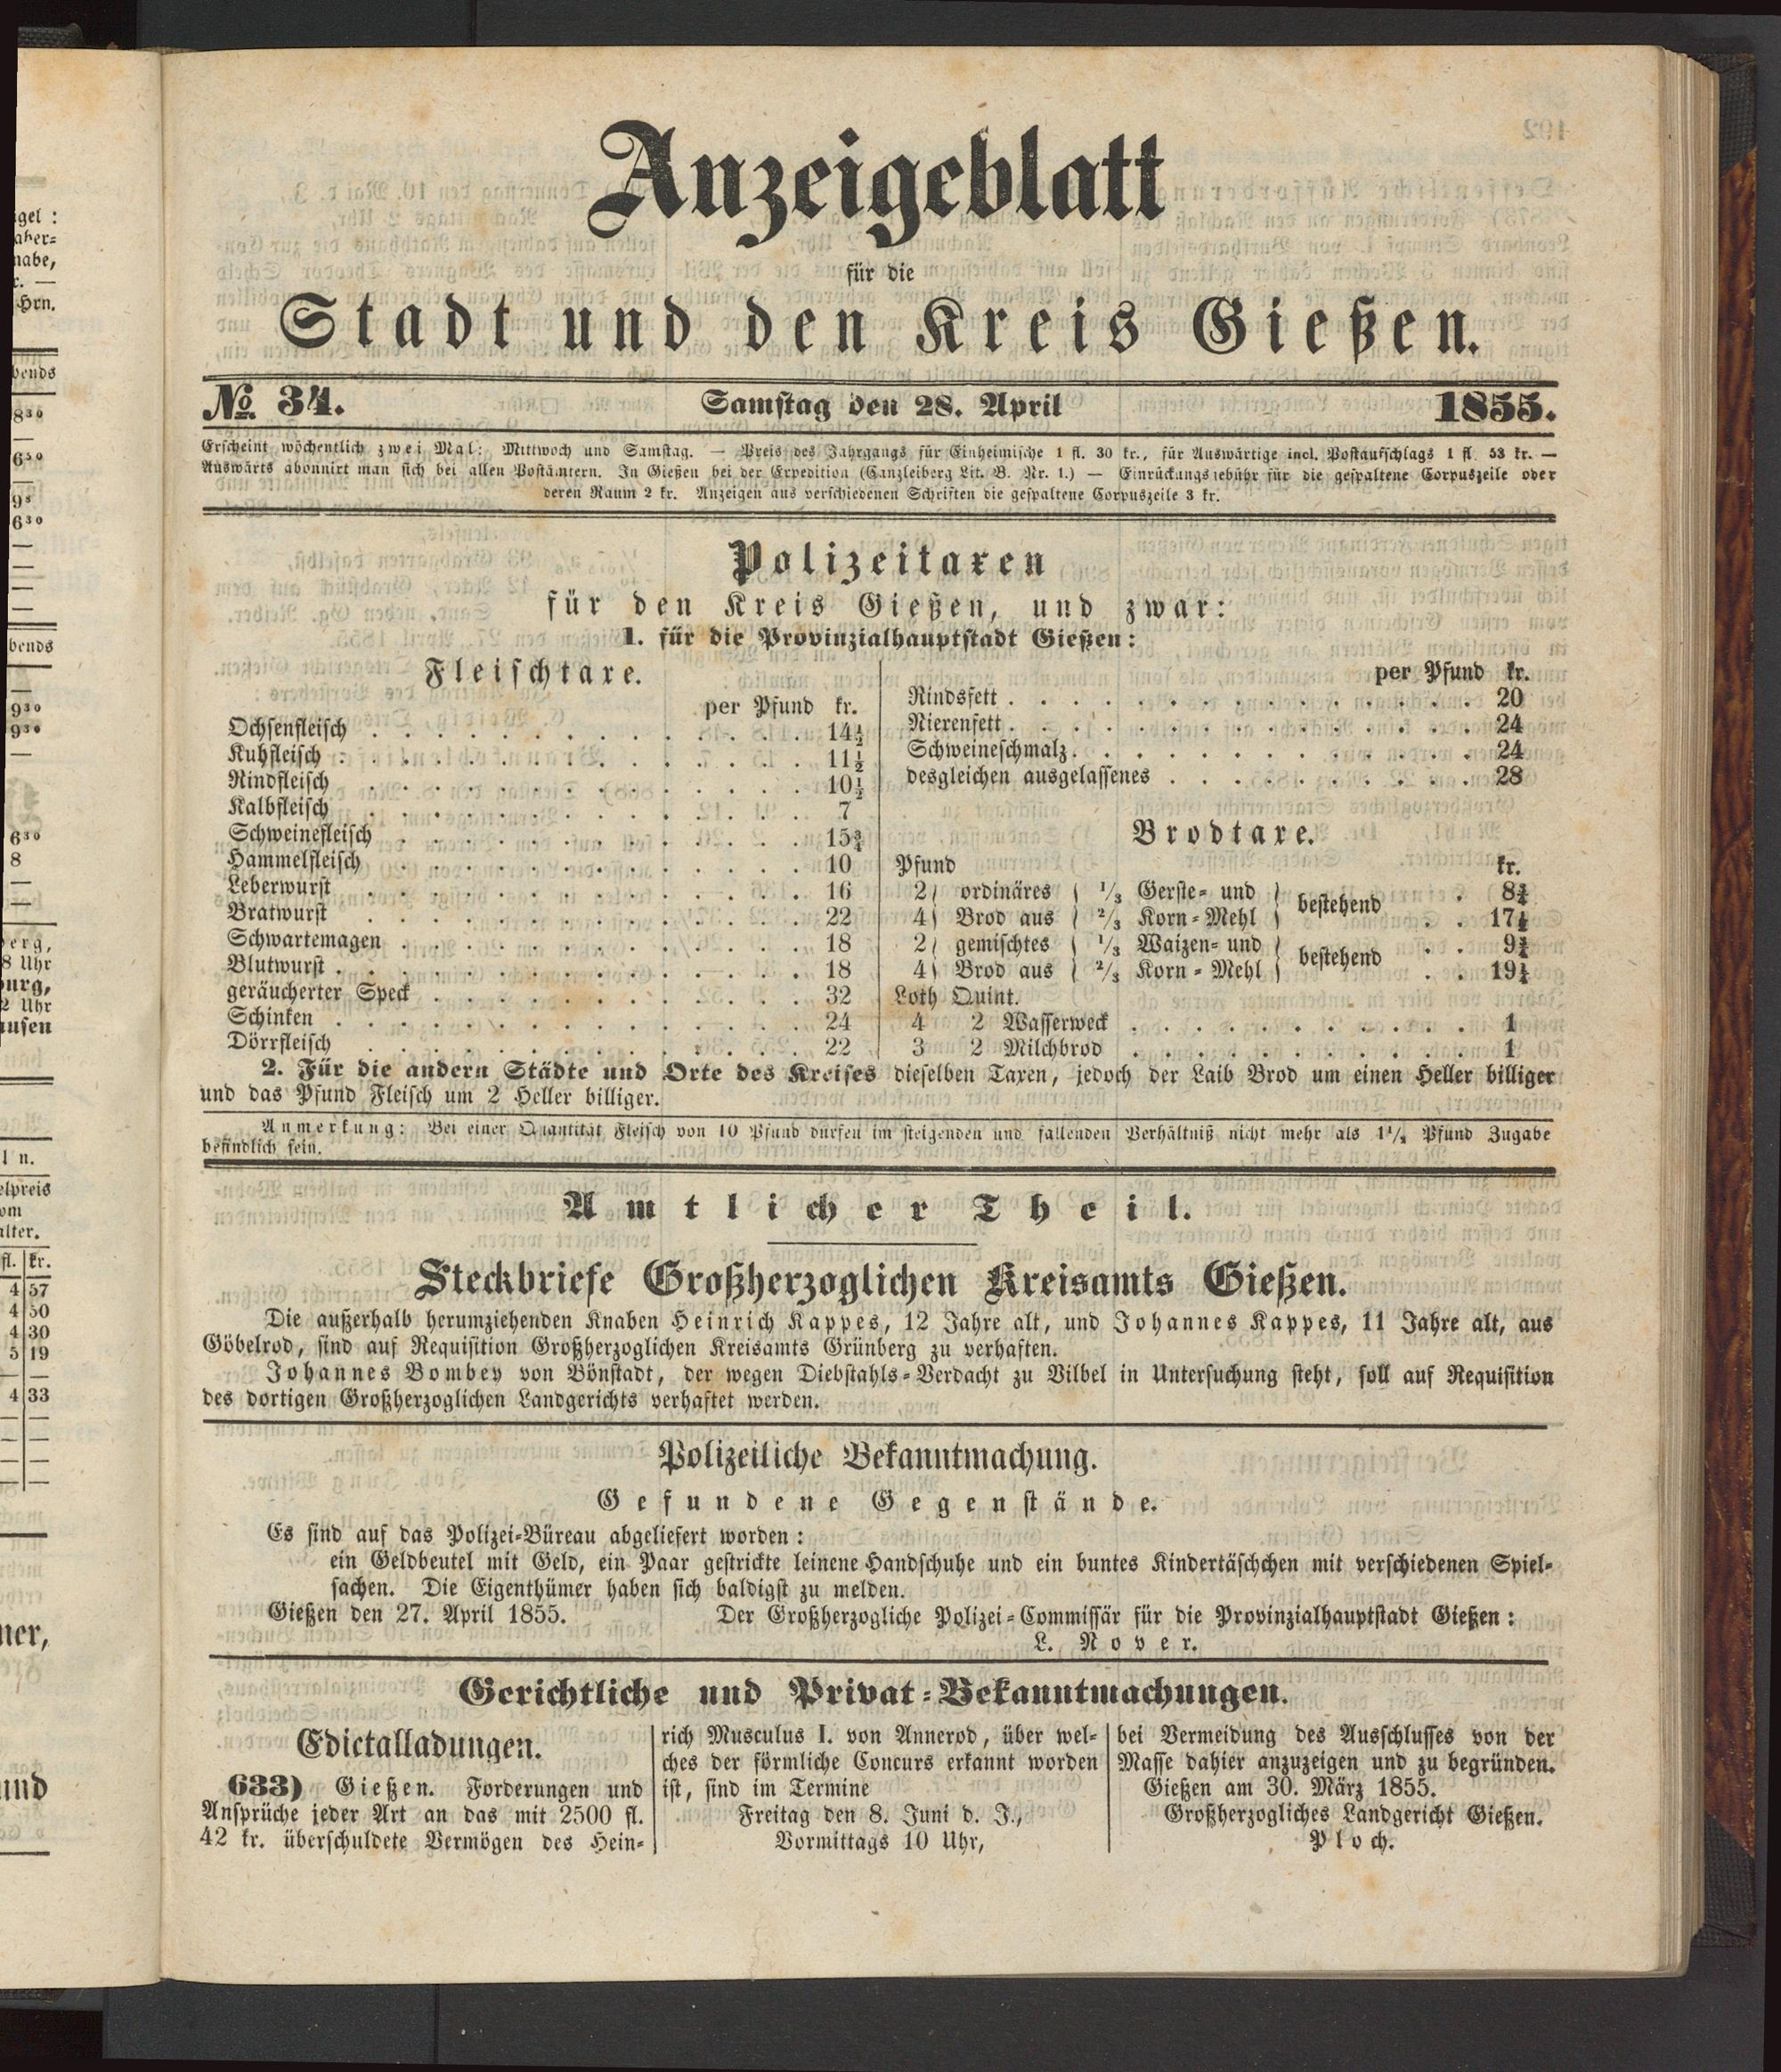 Anzeigeblatt
für die
Stadt und den Kreis Gießen.
No. 34. Samstag den 28. April 1855.
Erscheint wöchentlich zwei Mal: Mittwoch und Samstag. — Preis des Jahrgangs für Einheimische 1 fl. 30 kr., für Auswärtige incl. Postaufschlags 1 fl. 53 kr. —
Auswärts abonnirt man sich bei allen Postämtern. In Gießen bei der Expedition (Canzleiberg Lit. B. Nr. 1.) — Einrückungsgebühr für die gespaltene Corpuszeile oder
deren Raum 2 kr. Anzeigen aus verschiedenen Schriften die gespaltene Corpuszeile 3 kr.
Polizeitaxen
für den Kreis Gießen, und zwar:
1. für die Provinzialhauptstadt Gießen:
Fleischtaxe.
per Pfund kr.
Ochsenfleisch . . . 14½
Kuhfleisch . . . 11½
Rindfleisch . . . 10½
Kalbfleisch . . . 7
Schweinefleisch . . . 15¾
Hammelfleisch . . . 10
Leberwurst . . . 16
Bratwurst . . . 22
Schwartemagen . . . 18
Blutwurst . . . 18
geräucherter Speck . . . 32
Schinken . . . 24
Dörrfleisch . . . 22
per Pfund kr.
Rindsfett . . . 20
Nierenfett . . . 24
Schweineschmalz . . . 24
desgleichen ausgelassenes . . . 28
Brodtaxe.
Pfund kr.
2 ordinäres 1/3 Gerste- und bestehend
4 Brod aus 2/3 Korn-Mehl
2 gemischtes 1/3 Waizen- und bestehend
4 Brod aus 2/3 Korn-Mehl
Loth Quint.
4 2 Wasserweck . . . 1
3 2 Milchbrod . . . 1
2. Für die andern Städte und Orte des Kreises dieselben Taxen, jedoch der Laib Brod um einen Heller billiger
und das Pfund Fleisch um 2 Heller billiger.
Anmerkung: Bei einer Quantität Fleisch von 10 Pfund dürfen im steigenden und fallenden Verhältniß nicht mehr als 1½ Pfund Zugabe
befindlich sein.
Amtlicher Theil.
Steckbriefe Großherzoglichen Kreisamts Gießen.
Die außerhalb herumziehenden Knaben Heinrich Kappes, 12 Jahre alt, und Johannes Kappes, 11 Jahre alt, aus
Göbelrod, sind auf Requisition Großherzoglichen Kreisamts Grünberg zu verhaften.
Johannes Bombey von Bönstadt, der wegen Diebstahls-Verdacht zu Vilbel in Untersuchung steht, soll auf Requisition
des dortigen Großherzoglichen Landgerichts verhaftet werden.
Polizeiliche Bekanntmachung.
Gefundene Gegenstände.
Es sind auf das Polizei-Büreau abgeliefert worden:
ein Geldbeutel mit Geld, ein Paar gestrickte leinene Handschuhe und ein buntes Kindertäschchen mit verschiedenen Spiel-
sachen. Die Eigenthümer haben sich baldigst zu melden.
Gießen den 27. April 1855. Der Großherzogliche Polizei-Commissär für die Provinzialhauptstadt Gießen:
L. Nover.
Gerichtliche und Privat-Bekanntmachungen.
Edictalladungen.
633) Gießen. Forderungen und
Ansprüche jeder Art an das mit 2500 fl.
42 kr. überschuldete Vermögen des Hein-
rich Musculus I. von Annerod, über wel-
ches der förmliche Concurs erkannt worden
ist, sind im Termine
Freitag den 8. Juni d. J.,
Vormittags 10 Uhr,
bei Vermeidung des Ausschlusses von der
Masse dahier anzuzeigen und zu begründen.
Gießen am 30. März 1855.
Großherzogliches Landgericht Gießen.
Ploch.